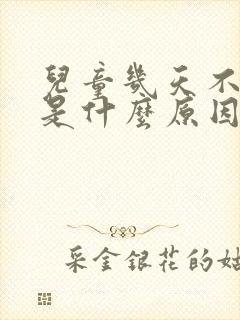 兒童幾天不
是什麼原因
采金銀花的姑